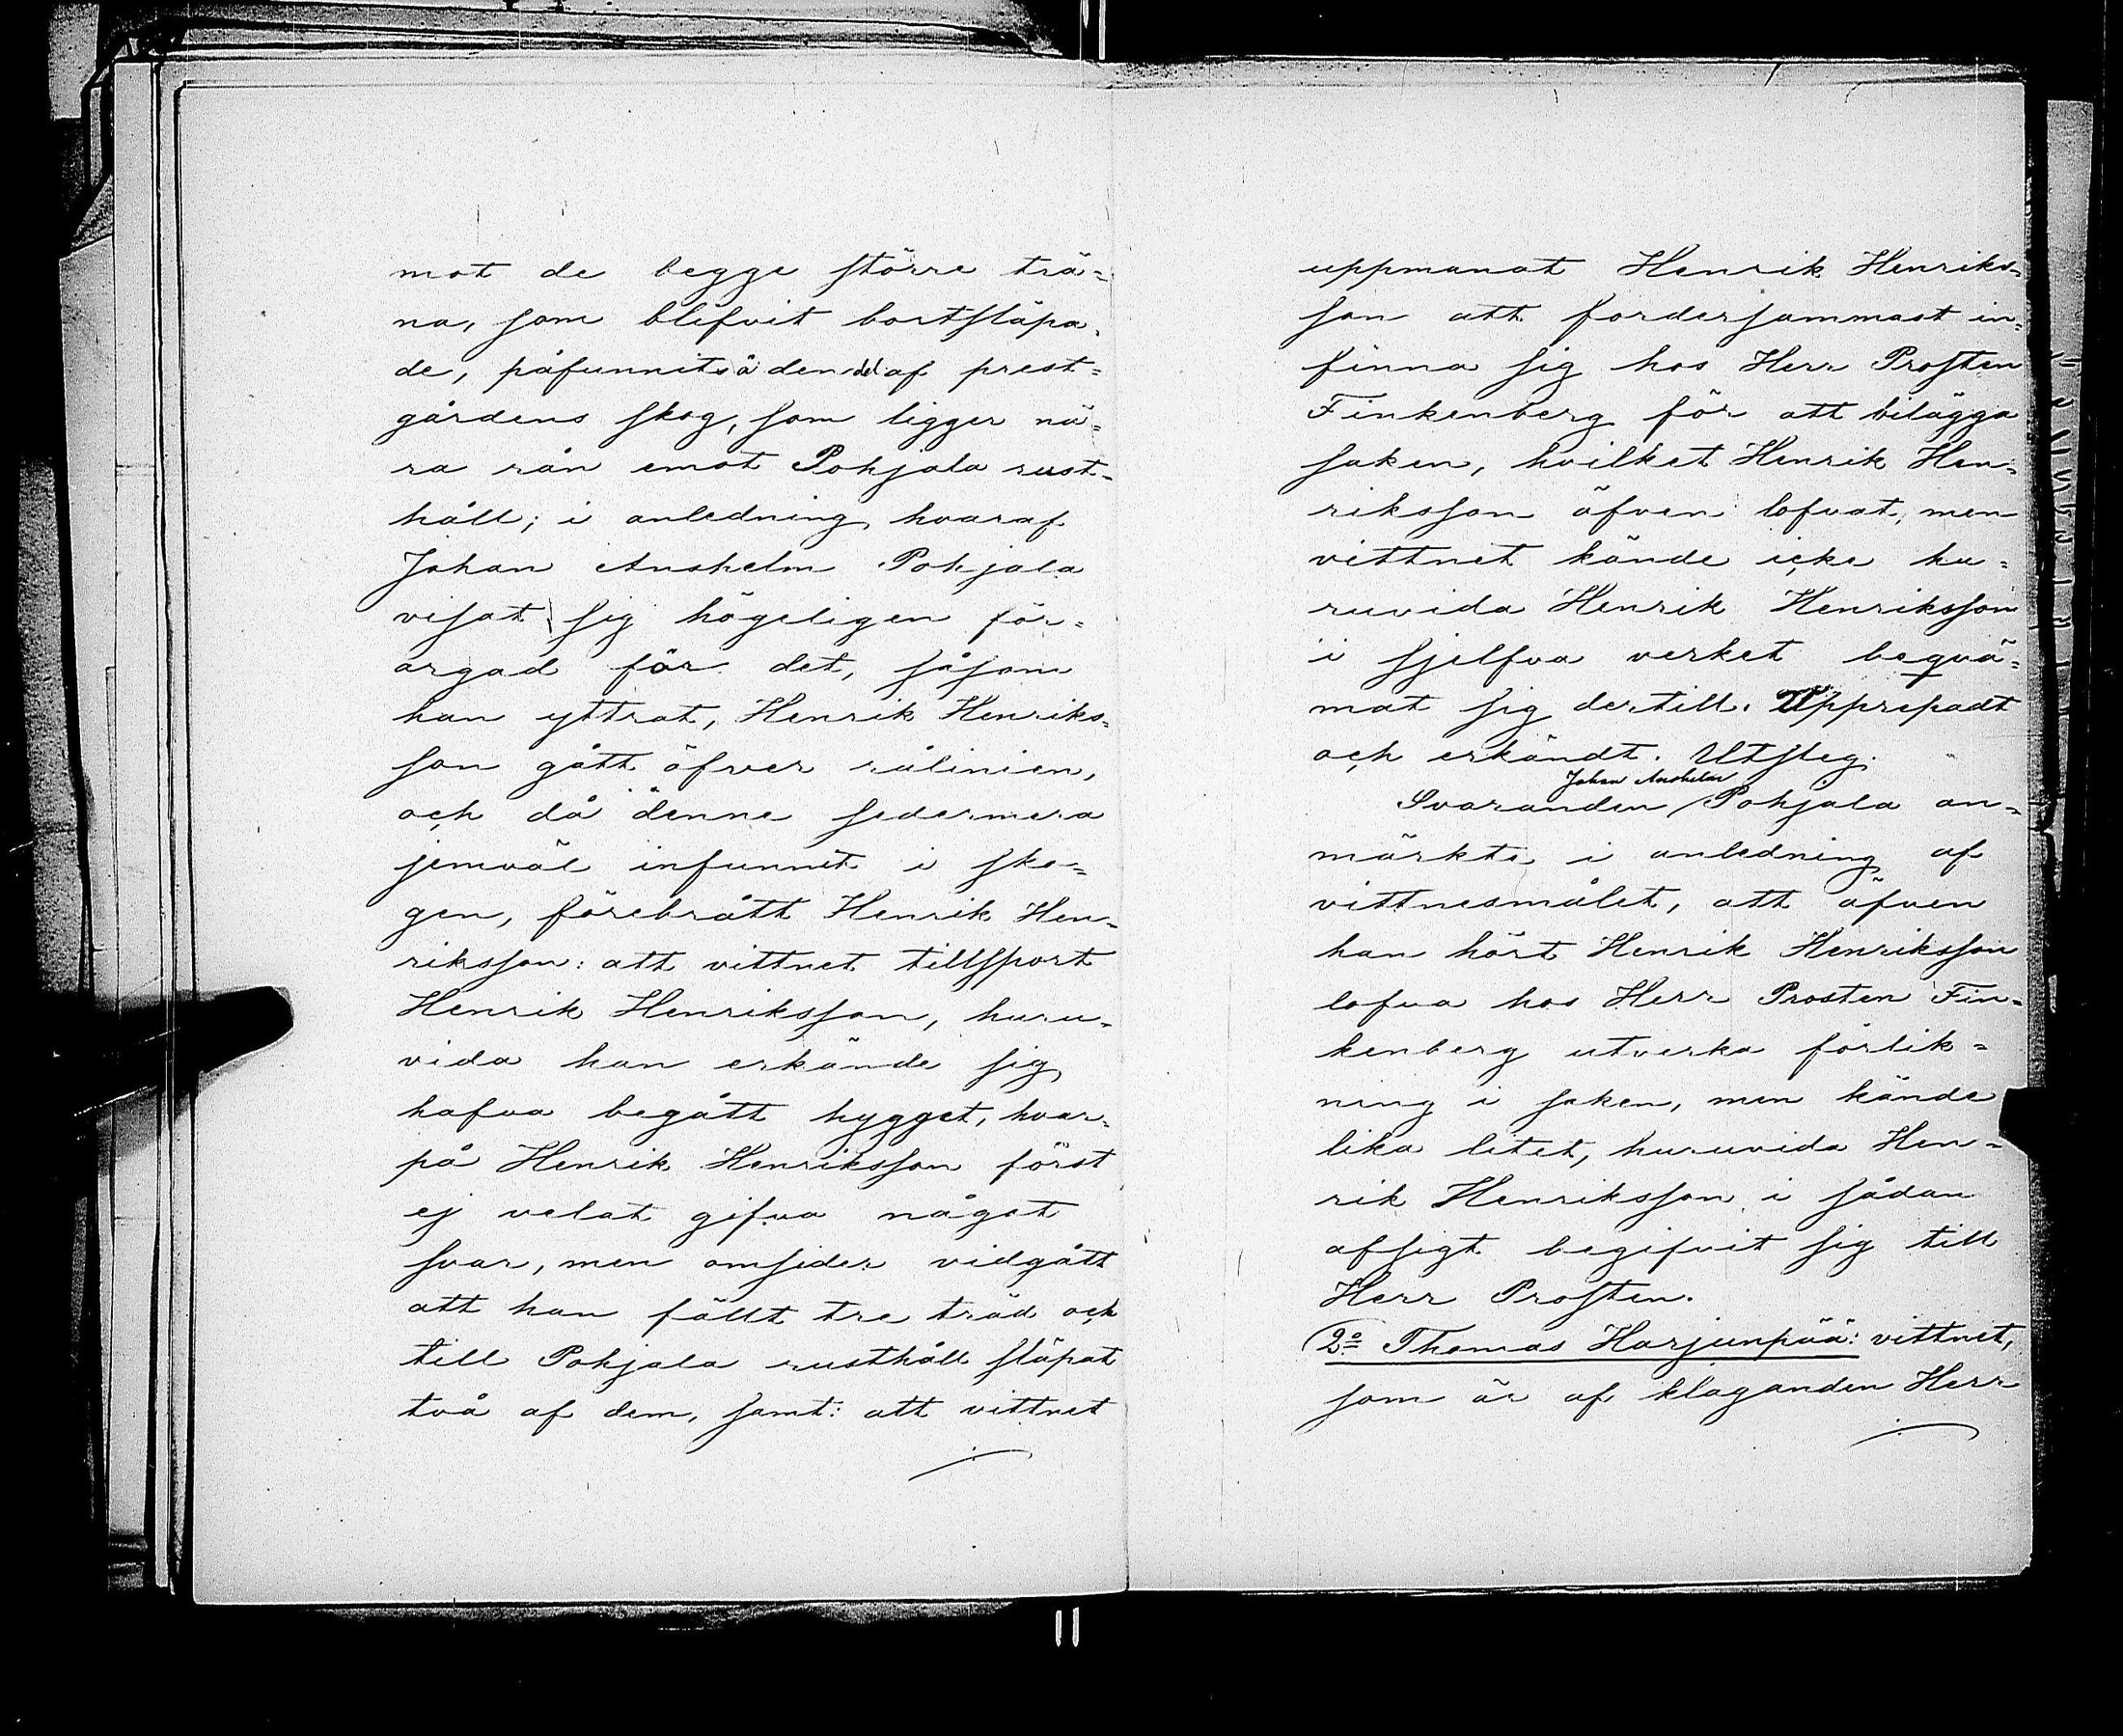 mot de begge större trä=
na, som blifvit bortsläpa=
de, påfunnits å den del af prest=
gårdens skog, som ligger nä=
ra rån emot Pohjala rust=
håll; i anledning hvaraf
Johan Anshelm Pohjala
visat sig högeligen för=
argad för det, såsom
han yttrat, Henrik Henriks=
son gått öfver rålinien,
och då denne sedermera
jemväl infunnit i sko=
gen, förebrått Henrik Hen=
riksson: att vittnet tillsport
Henrik Henriksson, huru=
vida han erkände sig
hafva begått hygget, hvar=
på Henrik Henriksson först
ej velat gifva något
svar, men omsider vidgått
att han fällt tre träd och
till Pohjala rusthåll släpat
två af dem, samt: att vittnet
uppmanat Henrik Henriks=
son att fordersammast in=
finna sig hos Herr Prosten
Finkenberg för att bilägga
saken, hvilket Henrik Hen=
riksson äfven lofvat, men
vittnet kände icke hu=
ruvida Henrik Henriksson
i sjelfva verket beqvä=
mat sig dertill. Upprepadt
och erkändt. Utsteg.
Johan Anshelm
Svaranden Pohjala an=
märkte i anledning af
vittnesmålet, att äfven
han hört Henrik Henriksson
lofva hos Herr Prosten Fin=
kenberg utverka förlik=
ning i saken, men kände
lika litet, huruvida Hen=
rik Henriksson i sådan
afsigt begifvit sig till
Herr Prosten.
2º Thomas Harjunpää: vittnet,
som är af klaganden Herr